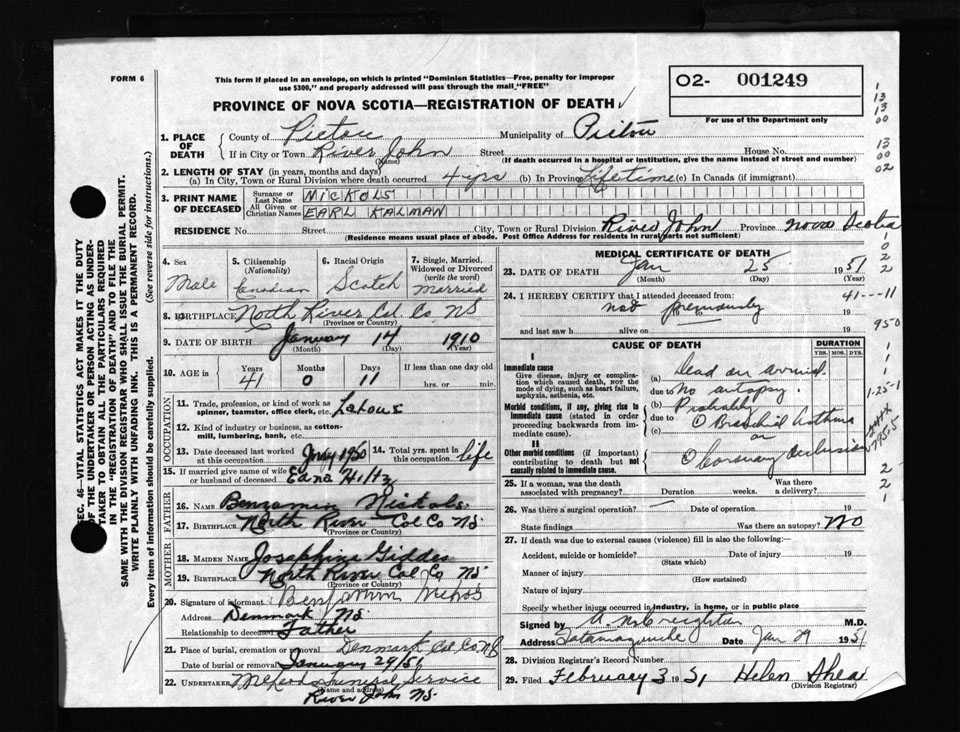 FORM 6
This form if placed in an envelope, on which is printed "Dominion Statistics—Free, penalty for improper
use $300," and properly addressed will pass through the mail "FREE"
O2- 001249
For use of the Department only
PROVINCE OF NOVA SCOTIA—REGISTRATION OF DEATH
1. PLACE OF DEATH
County of Pictou Municipality of Pictou
If in City or Town River John Street House No.
(Name) (If death occurred in a hospital or institution, give the name instead of street and number)
2. LENGTH OF STAY (in years, months and days)
(a) In City, Town or Rural Division where death occurred 4 yrs (b) In Province Lifetime (c) In Canada (if immigrant)
3. PRINT NAME OF DECEASED
Surname or Last Name NICKOLS
All Given or Christian Names EARL KALMAN
RESIDENCE No. Street City, Town or Rural Division River John Province Nova Scotia
(Residence means usual place of abode. Post Office Address for residents in rural parts not sufficient)
SEC. 46—VITAL STATISTICS ACT MAKES IT THE DUTY
OF THE UNDERTAKER OR PERSON ACTING AS UNDER-
TAKER TO OBTAIN ALL THE PARTICULARS REQUIRED
IN THE "REGISTRATION OF DEATH" AND TO FILE THE
SAME WITH THE DIVISION REGISTRAR WHO SHALL ISSUE THE BURIAL PERMIT.
WRITE PLAINLY WITH UNFADING INK. THIS IS A PERMANENT RECORD.
Every item of information should be carefully supplied. (See reverse side for instructions.)
4. Sex
Male
5. Citizenship (Nationality)
Canadian
6. Racial Origin
Scotch
7. Single, Married, Widowed or Divorced (write the word)
Married
8. BIRTHPLACE North River Col. Co. NS
(Province or Country)
9. DATE OF BIRTH January 14 1910
(Month) (Day) (Year)
10. AGE in Years Months Days If less than one day old
41 0 11 hrs. or min.
OCCUPATION
11. Trade, profession, or kind of work as
spinner, teamster, office clerk, etc. Labour
12. Kind of industry or business, as cotton-
mill, lumbering, bank, etc.
13. Date deceased last worked at this occupation 1950
14. Total yrs. spent in this occupation life
15. If married give name of wife or husband of deceased Edna Hiltz
FATHER
16. Name Benjamin Nickols
17. Birthplace North River Col Co NS
(Province or Country)
MOTHER
18. Maiden Name Josephine Giddes
19. Birthplace North River Col Co NS
(Province or Country)
20. Signature of informant Benjamin
Address Denmark NS
Relationship to deceased Father
21. Place of burial, cremation or removal Denmark Col. Co. NS
Date of burial or removal January 29/51
22. Undertaker McLeods Funeral Service
(Name and address)
River John NS
MEDICAL CERTIFICATE OF DEATH
23. DATE OF DEATH Jan 25 1951
(Month) (Day) (Year)
24. I HEREBY CERTIFY that I attended deceased from:
not previously
19 to 19
and last saw h alive on 19
CAUSE OF DEATH
DURATION
YRS. MOS. DYS.
I
Immediate cause
Give disease, injury or complica-
tion which caused death, NOT the
mode of dying, such as heart failure,
asphyxia, asthenia, etc.
(a) Dead on arrival.
due to No autopsy.
Morbid conditions, if any, giving rise to
immediate cause (stated in order
proceeding backwards from im-
mediate cause).
(b) Probably
due to ① Bronchial Asthma
(c) or
II
Other morbid conditions (if important)
contributing to death but not
causally related to immediate cause.
② Coronary Occlusion
25. If a woman, was the death associated with pregnancy? Duration weeks. Was there a delivery?
26. Was there a surgical operation? — Date of operation 19
State findings Was there an autopsy? NO
27. If death was due to external causes (violence) fill in also the following:
Accident, suicide or homicide? Date of injury 19
(State which)
Manner of injury
(How sustained)
Nature of injury
Specify whether injury occurred in industry, in home, or in public place
Signed by M.D.
Address Tatamagouche Date Jan 29 1951
28. Division Registrar's Record Number
29. Filed February 3 1951 Helen Shea
(Division Registrar)
1
13
13
00
13
00
02
1
0
2
2
41---11
950
1
1
1
1-25-1
2
2
1